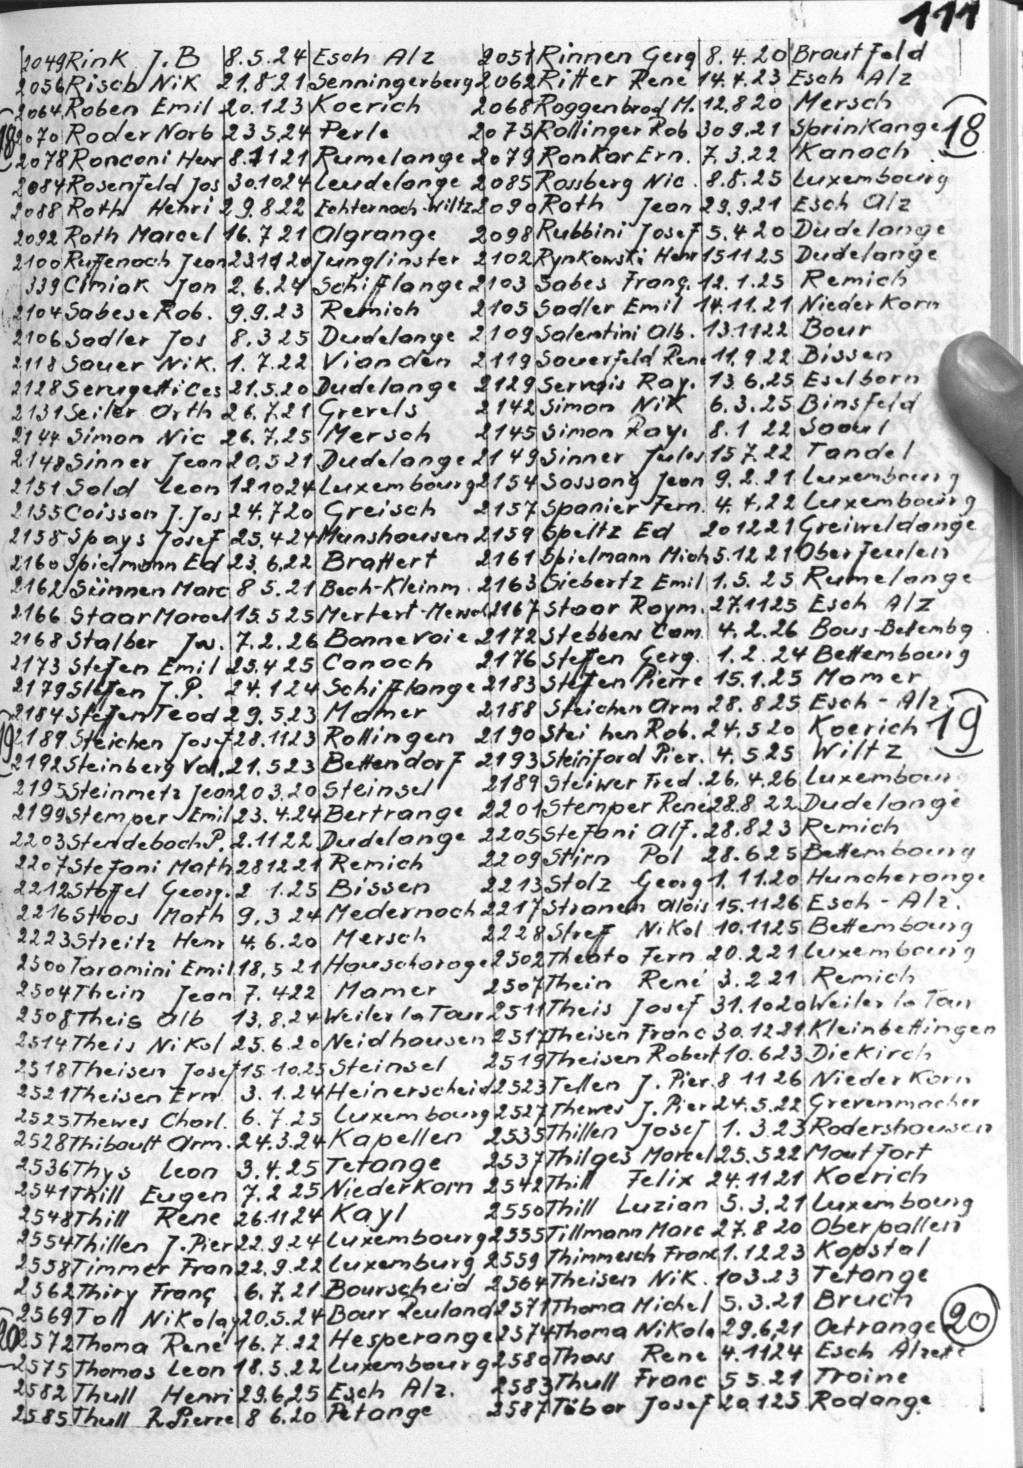 111
2049 Rink J.B 8.5.24 Esch Alz 2051 Rinnen Gerg 8.4.20 Brout Feld
2056 Risch Nik 21.8.21 Senningerberg 2062 Ritter Rene 14.4.23 Esch Alz
2064 Roben Emil 20.1.23 Koerich 2068 Roggenbrod M. 12.8.20 Mersch
18 2070 Roder Norb 23.5.24 Perle 2075 Rollinger Rob 30.9.21 SprinKange 18
2078 Ronconi Henr 8.1121 Rumelange 2079 RonKar Ern. 7.3.22 Kanach
2084 Rosenfeld Jos 30.1024 Leudelange 2085 Rossberg Nic. 8.8.25 Luxembourg
2088 Roth Henri 29.8.22 Echternach-Wiltz 2090 Roth Jean 29.9.21 Esch Alz
2092 Roth Marcel 16.7.21 Algrange 2098 Rubbini Josef 5.4.20 Dudelange
2100 Ruffenach Jean 231120 Junglinster 2102 Rynkowski Henr 151125 Dudelange
339 Ciniak Jan 2.6.24 Schifflange 2103 Sabes Franç. 12.1.25 Remich
2104 Sabese Rob. 9.9.23 Remich 2105 Sadler Emil 14.11.21 NiederKorn
2106 Sadler Jos 8.3.25 Dudelange 2109 Salentini Alb. 131122 Bour
2118 Sauer Nik. 1.7.22 Vianden 2119 Sauerfeld Rene 11.9.22 Bissen
2128 Serugetti Ces 21.5.20 Dudelange 2129 Servais Ray. 13.6.25 Eselborn
2131 Seiler Orth 26.7.21 Grevels 2142 Simon NiK 6.3.25 Binsfeld
2144 Simon Nic 26.7.25 Mersch 2145 Simon Ray. 8.1 22 Saeul
2148 Sinner Jean 20.5.21 Dudelange 2149 Sinner Jules 157.22 Tandel
2151 Sold Leon 121024 Luxembourg 2154 Sossong Jean 9.2.21 Luxembourg
2155 Coisson J.Jos 24.7.20 Greisch 2157 Spanier Fern. 4.4.22 Luxembourg
2158 Spays Josef 25.4.24 Munshausen 2159 Speltz Ed 201221 Greiweldange
2160 Spielmann Ed 23.6.22 Brattert 2161 Spielmann Mich 5.12.21 Oberfeulen
2162 Sünnen Marc 8 5.21 Bech-Kleinm. 2163 Siebertz Emil 1.5.25 Rumelange
2166 Staar Marcel 15.5.25 Mertert-Mersch 2167 Staar Raym. 27.1125 Esch Alz
2168 Stalber Jos. 7.2.26 Bonnevoie 2172 Stebbens Cam. 4.2.26 Bous-Betembg
2173 Steffen Emil 25.4.25 Canach 2176 Steffen Gerg. 1.2.24 Bettembourg
2179 Steffen J.P. 24.1.24 Schifflange 2183 Steffen Pierre 15.1.25 Mamer
2184 Steffen Teod 29.5.23 Mamer 2188 Steichen Arm 28.8.25 Esch-Alz
19 2189 Steichen Josef 28.1123 Rollingen 2190 Steichen Rob. 24.5.20 Koerich 19
2192 Steinberg Val. 21.5.23 Bettendorf 2193 Steinford Pier. 4.5.25 Wiltz
2195 Steinmetz Jean 203.20 Steinsel 2189 Steiwer Fred. 26.4.26 Luxembourg
2199 Stemper Emil 23.4.24 Bertrange 2201 Stemper Rene 28.8.22 Dudelange
2203 Stendebach P. 2.1122 Dudelange 2205 Stefani Alf. 28.823 Remich
2207 Stefani Math 281221 Remich 2209 Stirn Pol 28.6.25 Bettembourg
2212 Stoffel Georg. 2 1.25 Bissen 2213 Stolz Georg 1.11.20 Huncherange
2216 Stoos Math 9.3.24 Medernach 2217 Stranen Alois 15.1126 Esch-Alz.
2223 Streitz Henr 4.6.20 Mersch 2228 Streff Nikol 10.1125 Bettembourg
2500 Taramini Emil 18.5 21 Hauscharage 2502 Theato Fern 20.2.21 Luxembourg
2504 Thein Jean 7.422 Mamer 2507 Thein René 3.2.21 Remich
2508 Theis Alb 13.8.24 Weiler la Tour 2511 Theis Josef 31.1020 Weiler la Tour
2514 Theis NiKol 25.6.20 Neidhausen 2517 Theisen Franc 30.12.21 Kleinbettingen
2518 Theisen Josef 15.10.25 Steinsel 2519 Theisen Robert 10.623 DieKirch
2521 Theisen Ern. 3.1.24 Heinerscheid 2523 Tellen J. Pier. 8 11 26 NiederKorn
2525 Thewes Charl. 6.7.25 Luxembourg 2527 Thewes J.Pier 24.5.22 Grevenmacher
2528 Thibault Arm. 24.3.24 Kapellen 2535 Thillen Josef 1.3.23 Rodershausen
2536 Thys Leon 3.4.25 Tetange 2537 Thilges Marcel 25.522 Moutfort
2541 Thill Eugen 7.2 25 NiederKorn 2542 Thill Felix 24.11 21 Koerich
2548 Thill Rene 26.1124 Kayl 2550 Thill Luzian 5.3.21 Luxembourg
2554 Thillen J.Pier 22.9.24 Luxembourg 2555 Tillmann Marc 27.8 20 Oberpallen
2558 Timmer Fran 22.9.22 Luxemburg 2559 Thimmesch Franc 1.12.23 Kopstal
2562 Thiry Franç 6.7.21 Bourscheid 2564 Theisen NiK. 103.23 Tetange
2569 Toll NiKolay 20.5.24 Bour Leuland 2571 Thoma Michel 5.3.21 Bruch
20 2572 Thoma René 16.7.22 Hesperange 2574 Thoma NiKola 29.6.21 Oetrange 20
2575 Thomas Leon 18.5.22 Luxembourg 2580 Thoss Rene 4.1124 Esch Alzett
2582 Thull Henri 29.6.25 Esch Alz. 2583 Thull Franc 5 5.21 Troine
2585 Thull R.Pierre 8 6.20 Petange 2587 Tibor Josef 20.125 Rodange